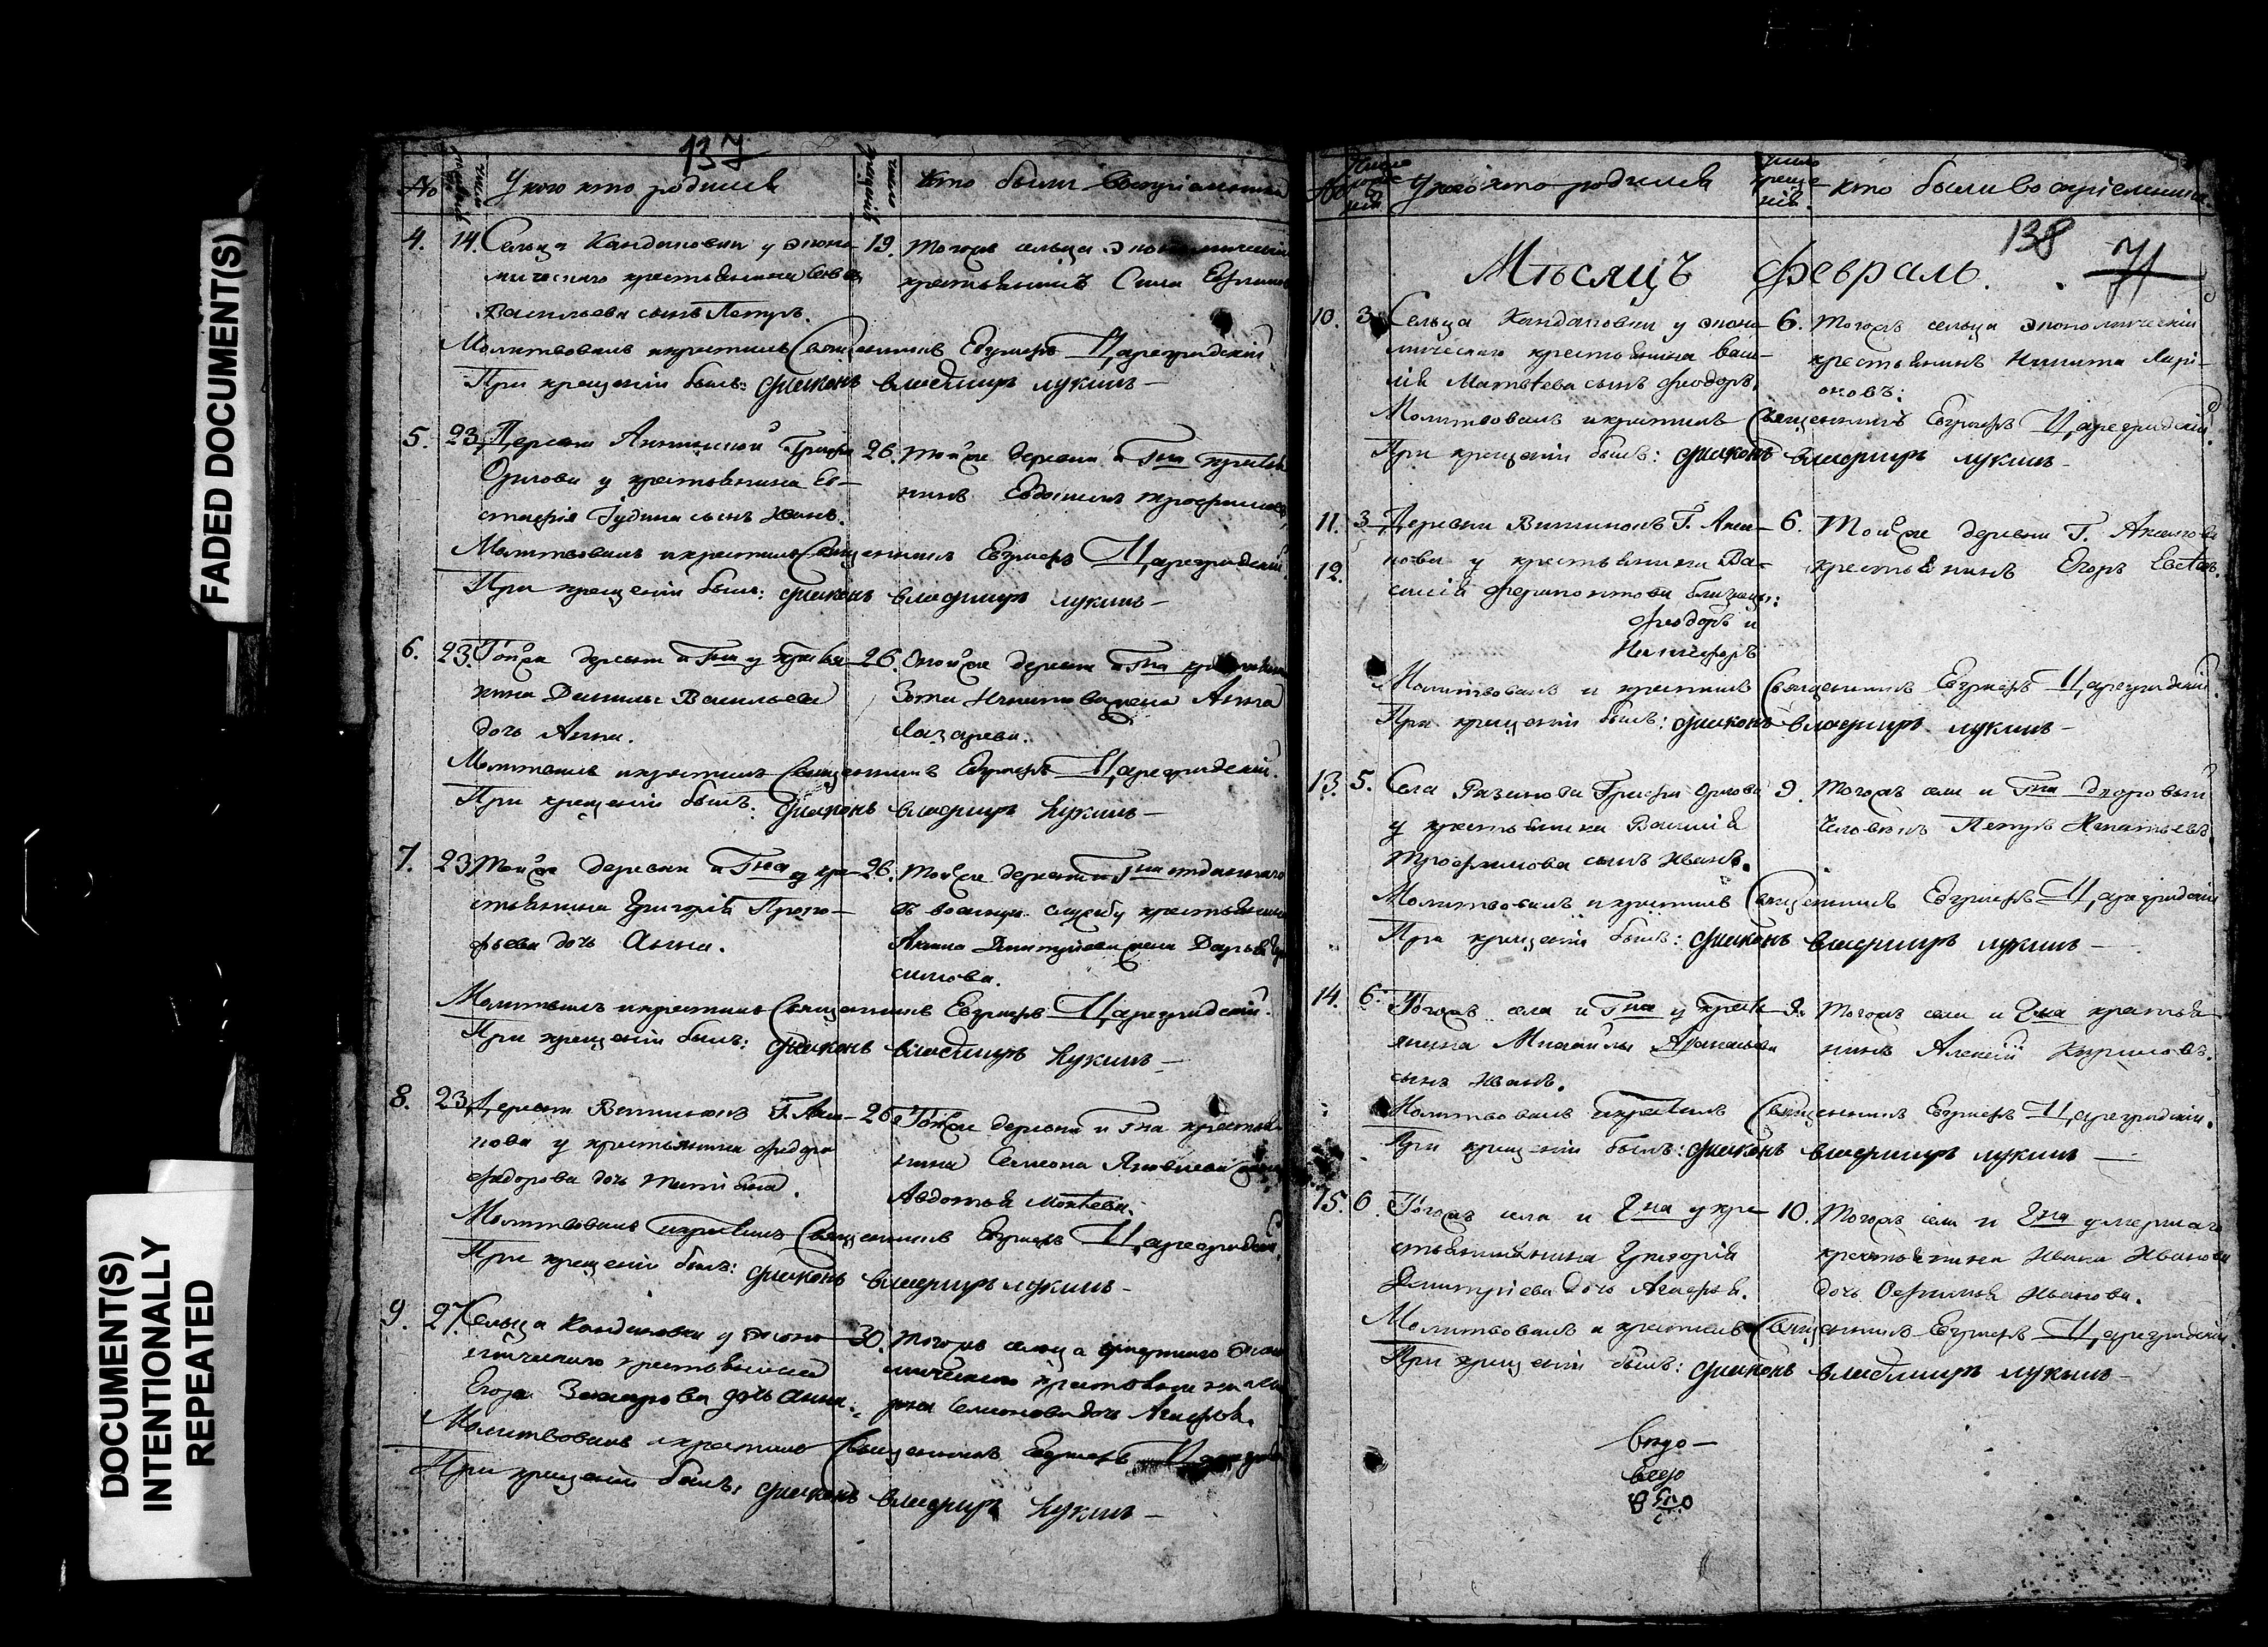 FADED DOCUMENT(S)
DOCUMENT(S)
INTENTIONALLY
REPEATED
137
№
число рожденія
У кого кто родился
число крещенія
Кто были восприемники
4. 14. Сельца Кандаковки у эконо-
мическаго крестьянина
Васильева сынъ Петръ.
19. Тогожъ сельца экономическій
крестьянинъ Сила
Молитвовалъ и крестилъ Священникъ Евграфъ Цареградскій
При крещеніи былъ: диаконъ владимиръ лукинъ—
5. 23. Деревни Графа
Орлова у крестьянина Ев-
стафія Іудина сынъ Иванъ.
26. Тойже деревни и Гна крестья
нинъ Евдокимъ Трофимовъ
Молитвовалъ и крестилъ Священникъ Евграфъ Цареградскій
При крещеніи былъ: диаконъ владимиръ лукинъ—
6. 23. Тойже деревни и Гна у крестья
нина Данилы Васильева
дочь Анна.
26. Тойже деревни и Гна крестьянина
Зота Никитова жена Анна
Лазарева.
Молитвовалъ и крестилъ Священникъ Евграфъ Цареградскій
При крещеніи былъ: диаконъ владимиръ лукинъ—
7. 23. Тойже деревни и Гна у кре-
стьянина Григорія Проко-
фьева дочь Анна.
26. Тойже деревни и Гна отданнаго
въ военную службу крестьянина
Дмитріева жена Дарья
симова.
Молитвовалъ и крестилъ Священникъ Евграфъ Цареградскій
При крещеніи былъ: диаконъ владимиръ лукинъ—
8. 23. Деревни Г. Аки-
нова у крестьянина Федора
Федорова дочь Татіяна.
26. Тойже деревни и Гна крестья
нина Семена Яковлева жена
Авдотья Мокѣева.
Молитвовалъ и крестилъ Священникъ Евграфъ Цареградскій
При крещеніи былъ: диаконъ владимиръ лукинъ—
9. 27. Сельца Кандаковки у эконо
мическаго крестьянина
Егора Захарова дочь Анна.
30. Тогожъ сельца умершаго эконо
мическаго крестьянина
Семенова дочь Агафья.
Молитвовалъ и крестилъ Священникъ Евграфъ Цареград
При крещеніи былъ: диаконъ владимиръ лукинъ—
№
Число рожде нія
У кого кто родился
число креще нія.
кто были восприемники
138 71
Мѣсяцъ Февраль.
10. 3. Сельца Кандаковки у эконо
мическаго крестьянина Васи-
лія Матвѣева сынъ Феодоръ.
6. Тогожъ сельца экономическій
крестьянинъ Никита Ларі-
оновъ.
Молитвовалъ и крестилъ Священникъ Евграфъ Цареградскій
При крещеніи былъ: диаконъ владимиръ лукинъ—
11. 3. Деревни Г. Аки-
12. нова у крестьянина Ва-
силія Ферапонтова близнецы:
Феодоръ и
Никифоръ
6. Тойже деревни Г. Акинова
крестьянинъ Егоръ
Молитвовалъ и крестилъ Священникъ Евграфъ Цареградскій.
При крещеніи былъ: диаконъ владимиръ лукинъ—
13. 5. Села Разинова Графа Орлова
у крестьянина Василія
Трофимова сынъ Иванъ.
9. Тогожъ села и Гна дворовый
человѣкъ Петръ Игнатьевъ.
Молитвовалъ и крестилъ Священникъ Евграфъ Цареградскій
При крещеніи былъ: диаконъ владимиръ лукинъ—
14. 6. Тогожъ села и Гна у крестья
янина Михайлы Афанасьева
сынъ Иванъ.
9. Тогожъ села и Гна крестья
нинъ Алексѣй Кириловъ.
Молитвовалъ и крестилъ Священникъ Евграфъ Цареградскій.
При крещеніи былъ: диаконъ владимиръ лукинъ—
15. 6. Тогожъ села и Гна у кре-
стьянинянина Григорія
Дмитріева дочь Агафья.
10. Тогожъ села и Гна умершаго
крестьянина Ивана Иванова
дочь Ефимья Иванова.
Молитвовалъ и крестилъ Священникъ Евграфъ Цареградскій
При крещеніи былъ: диаконъ владимиръ лукинъ—